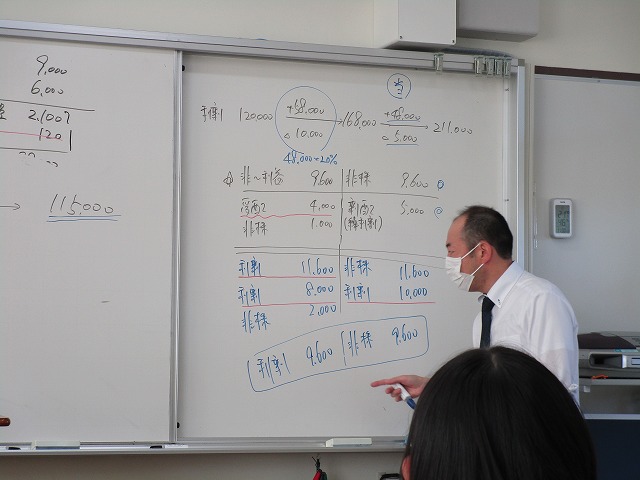 9,000
6,000
2,100
120
115,000
当
利剰 120,000 +58,000 △10,000 168,000 +48,000 △5,000 211,000
48,000×20%
非〜利益 9,600 非株 9,600
受配 4,000 剰配 5,000
非株 1,000 (利剰)
利剰 11,600 非株 11,600
利剰 8,000 利剰 10,000
非株 2,000
利剰 9,600 非株 9,600